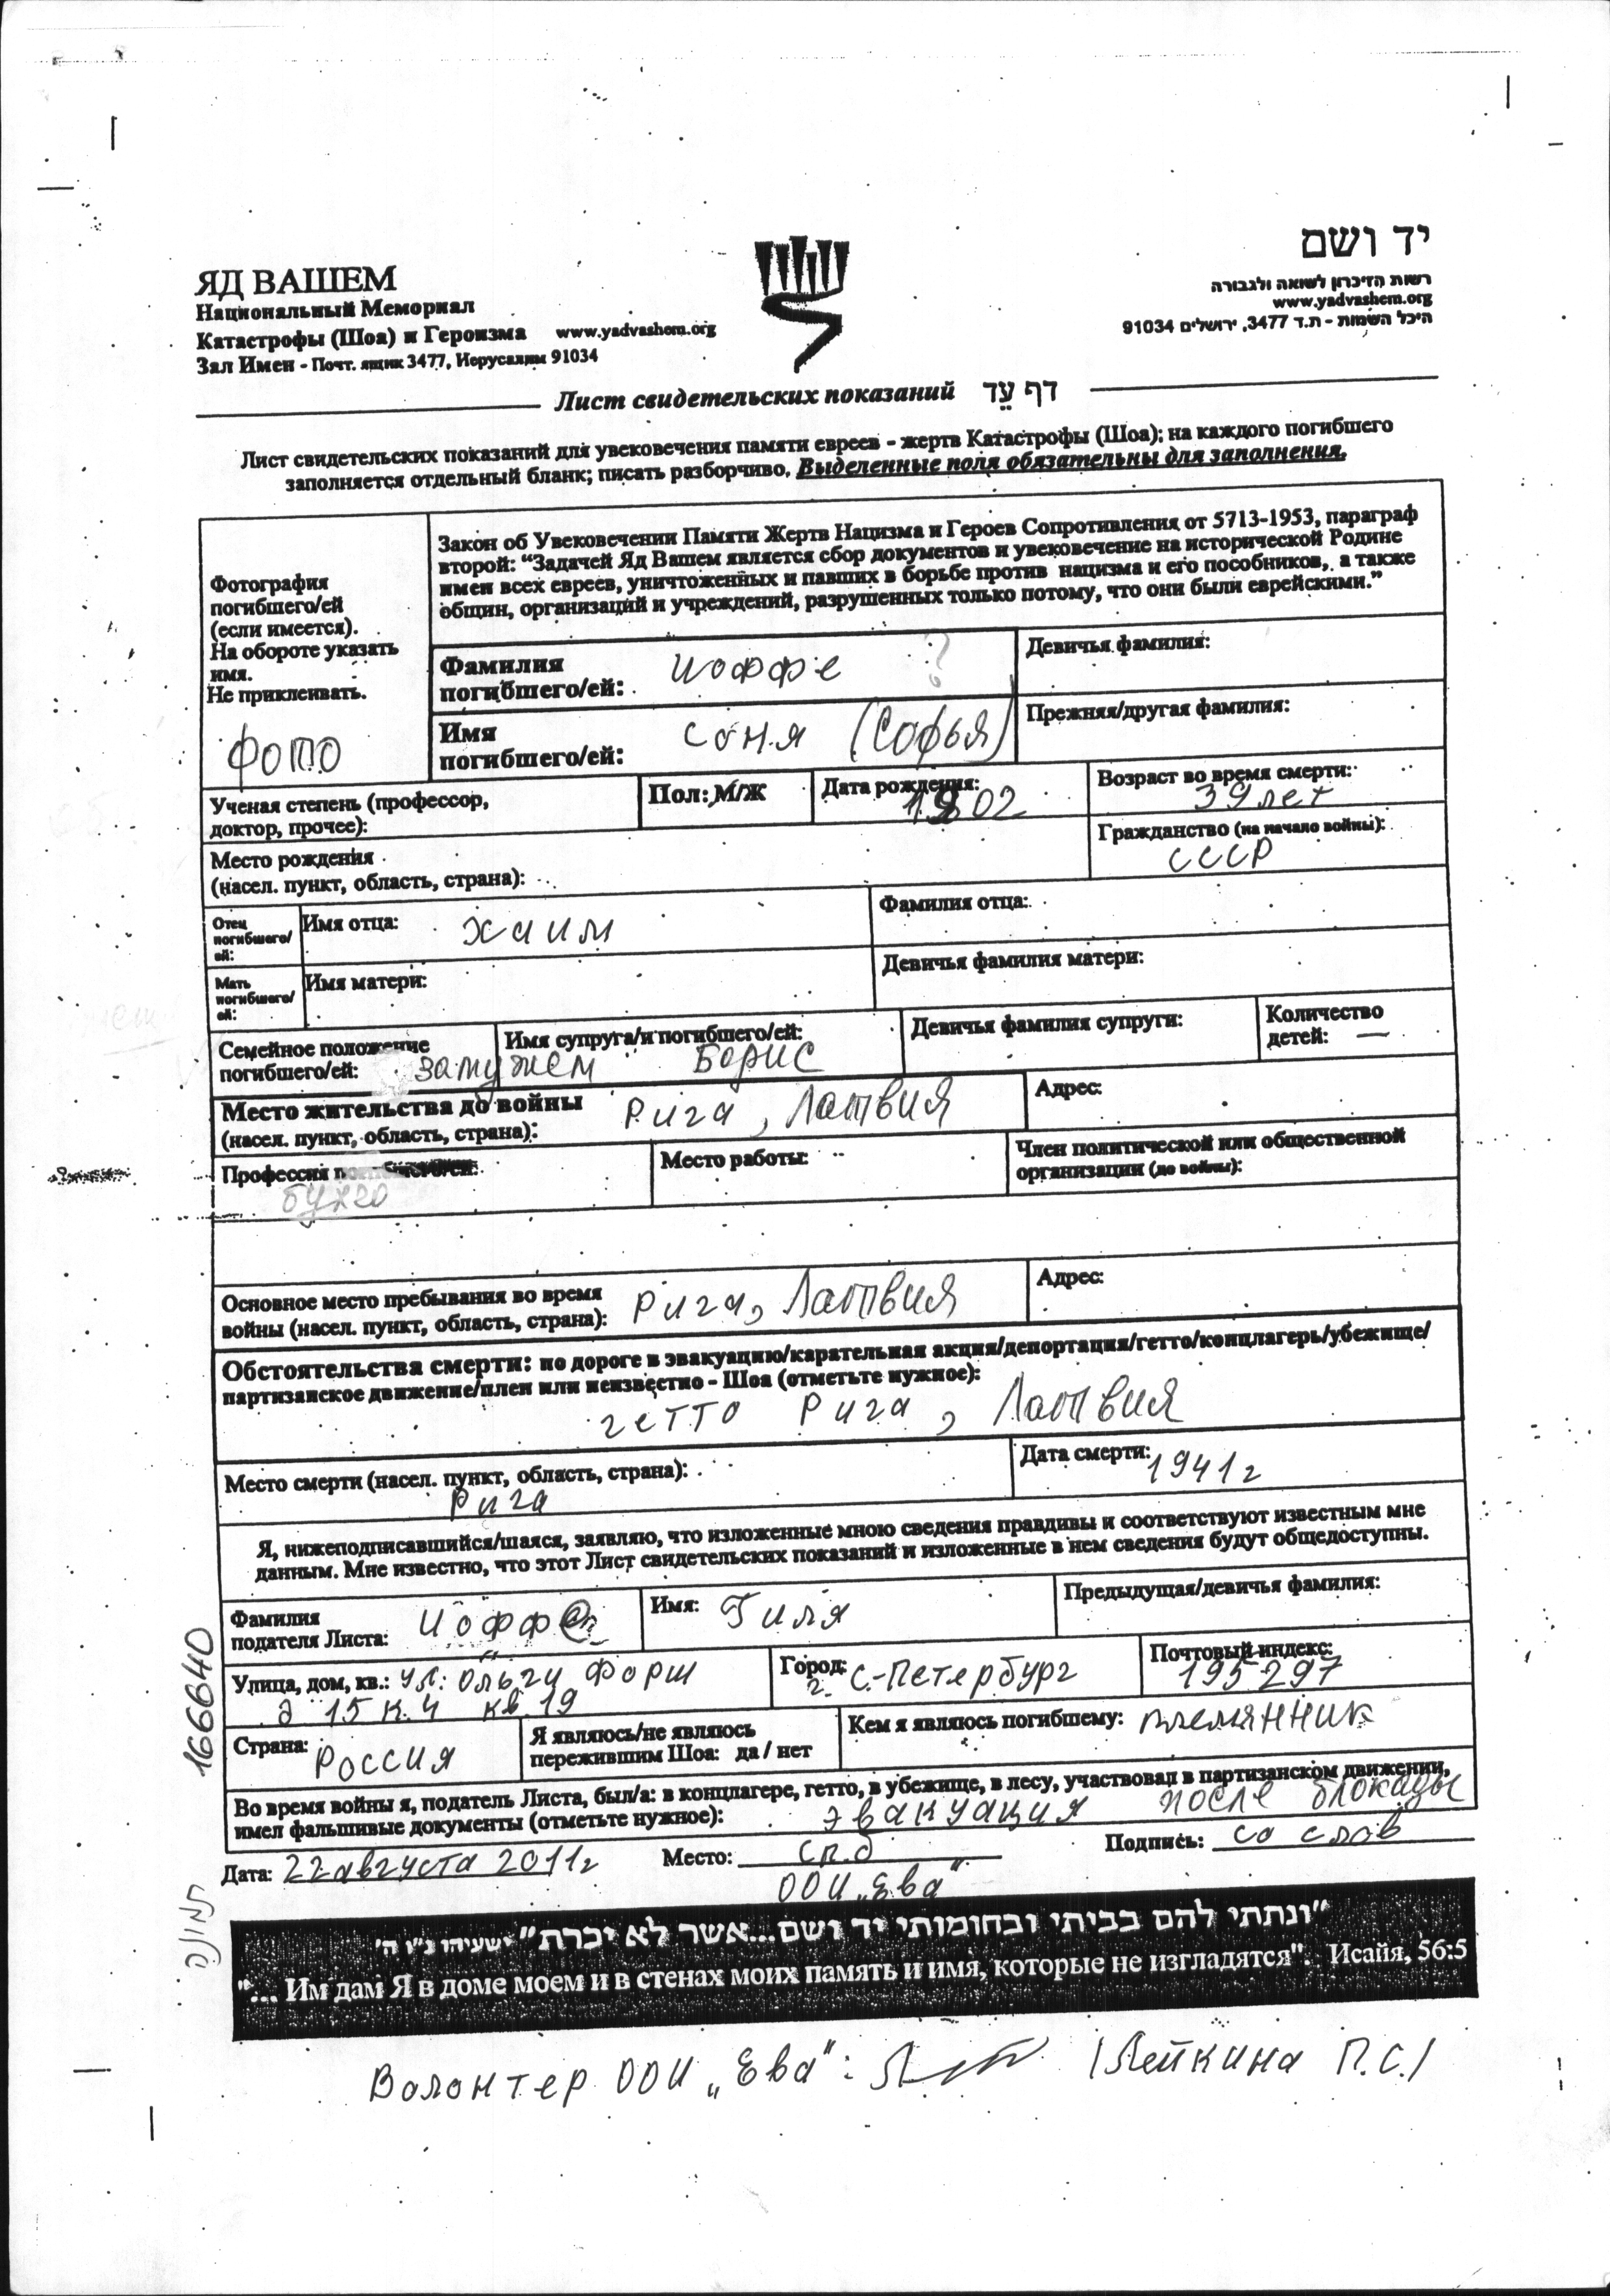 ЯД ВАШЕМ
Национальный Мемориал
Катастрофы (Шоа) и Героизма www.yadvashem.org
Зал Имен - Почт. ящик 3477, Иерусалим 91034
יד ושם
רשות הזיכרון לשואה ולגבורה
www.yadvashem.org
היכל השמות - ת.ד 3477, ירושלים 91034
Лист свидетельских показаний דף עֵד
Лист свидетельских показаний для увековечения памяти евреев - жертв Катастрофы (Шоа); на каждого погибшего
заполняется отдельный бланк; писать разборчиво. Выделенные поля обязательны для заполнения.
Фотография
погибшего/ей
(если имеется).
На обороте указать
имя.
Не приклеивать.
ФОТО
Закон об Увековечении Памяти Жертв Нацизма и Героев Сопротивления от 5713-1953, параграф
второй: “Задачей Яд Вашем является сбор документов и увековечение на исторической Родине
имен всех евреев, уничтоженных и павших в борьбе против нацизма и его пособников, а также
общин, организаций и учреждений, разрушенных только потому, что они были еврейскими.”
Фамилия
погибшего/ей: Иоффе ?
Девичья фамилия:
Имя
погибшего/ей: Соня (Софья)
Прежняя/другая фамилия:
Ученая степень (профессор,
доктор, прочее):
Пол: М/Ж
Дата рождения:
1902
Возраст во время смерти:
39 лет
Место рождения
(насел. пункт, область, страна):
Гражданство (на начало войны):
СССР
Отец
погибшего/
ей:
Имя отца: Хаим
Фамилия отца:
Мать
погибшего/
ей:
Имя матери:
Девичья фамилия матери:
Семейное положение
погибшего/ей: замужем
Имя супруга/и погибшего/ей:
Борис
Девичья фамилия супруги:
Количество
детей: —
Место жительства до войны
(насел. пункт, область, страна): Рига, Латвия
Адрес:
Профессия
бухго
Место работы:
Член политической или общественной
организации (до войны):
Основное место пребывания во время
войны (насел. пункт, область, страна): Рига, Латвия
Адрес:
Обстоятельства смерти: по дороге в эвакуацию/карательная акция/депортация/гетто/концлагерь/убежище/
партизанское движение/плен или неизвестно - Шоа (отметьте нужное):
гетто Рига, Латвия
Место смерти (насел. пункт, область, страна):
Рига
Дата смерти: 1941г
Я, нижеподписавшийся/шаяся, заявляю, что изложенные мною сведения правдивы и соответствуют известным мне
данным. Мне известно, что этот Лист свидетельских показаний и изложенные в нем сведения будут общедоступны.
Фамилия
подателя Листа: Иоффе
Имя: Гиля
Предыдущая/девичья фамилия:
Улица, дом, кв.: ул: Ольги Форш
д 15 к. 4 кв. 19
Город:
г. С-Петербург
Почтовый индекс:
195297
Страна: Россия
Я являюсь/не являюсь
пережившим Шоа: да / нет
Кем я являюсь погибшему: племянник
Во время войны я, податель Листа, был/а: в концлагере, гетто, в убежище, в лесу, участвовал в партизанском движении,
имел фальшивые документы (отметьте нужное): эвакуация после блокады
Дата: 22 августа 2011г Место: Спб Подпись: со слов
ООИ „Ева“
1666640
תמונה
"ונתתי להם בביתי ובחומותי יד ושם...אשר לא יכרת" ישעיהו נ"ו ה'
"... Им дам Я в доме моем и в стенах моих память и имя, которые не изгладятся". Исайя, 56:5
Волонтер ООИ „Ева“: (Лейкина П.С.)